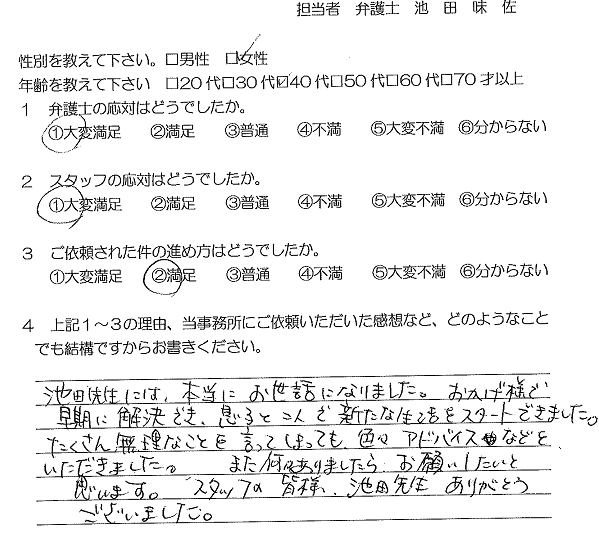 担当者　弁護士　池　田　味　佐
性別を教えて下さい。□男性　☑女性
年齢を教えて下さい　□20代□30代☑40代□50代□60代□70才以上
1　弁護士の応対はどうでしたか。
①大変満足　②満足　③普通　④不満　⑤大変不満　⑥分からない
2　スタッフの応対はどうでしたか。
①大変満足　②満足　③普通　④不満　⑤大変不満　⑥分からない
3　ご依頼された件の進め方はどうでしたか。
①大変満足　②満足　③普通　④不満　⑤大変不満　⑥分からない
4　上記1～3の理由、当事務所にご依頼いただいた感想など、どのようなこと
でも結構ですからお書きください。
池田先生には、本当に お世話になりました。おかげ様で
早期に解決でき、 新たな生活をスタートできました。
たくさん無理なことを言ってしまっても、色々 アドバイス などを
いただきました。　また何かありましたら お願いしたいと
思います。　スタッフの皆様、池田先生 ありがとう
ございました。